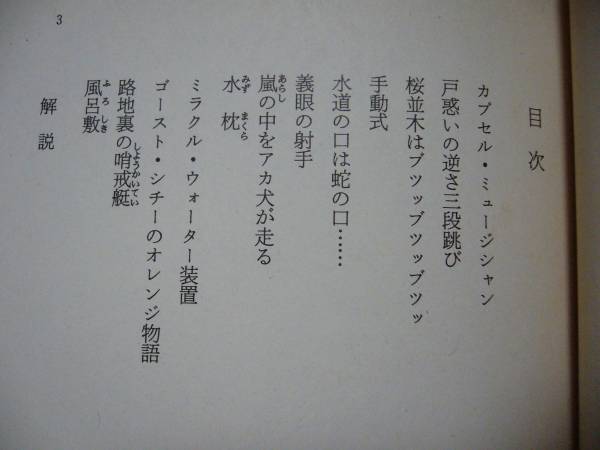 目次
カプセル・ミュージシャン
戸惑いの逆さ三段跳び
桜並木はブツッブツッブツッ
手動式
水道の口は蛇の口……
義眼の射手
嵐の中をアカ犬が走る
あらし
水枕
みず まくら
ミラクル・ウォーター装置
ゴースト・シチーのオレンジ物語
路地裏の哨戒艇
しようかいてい
風呂敷
ふろしき
解説
3